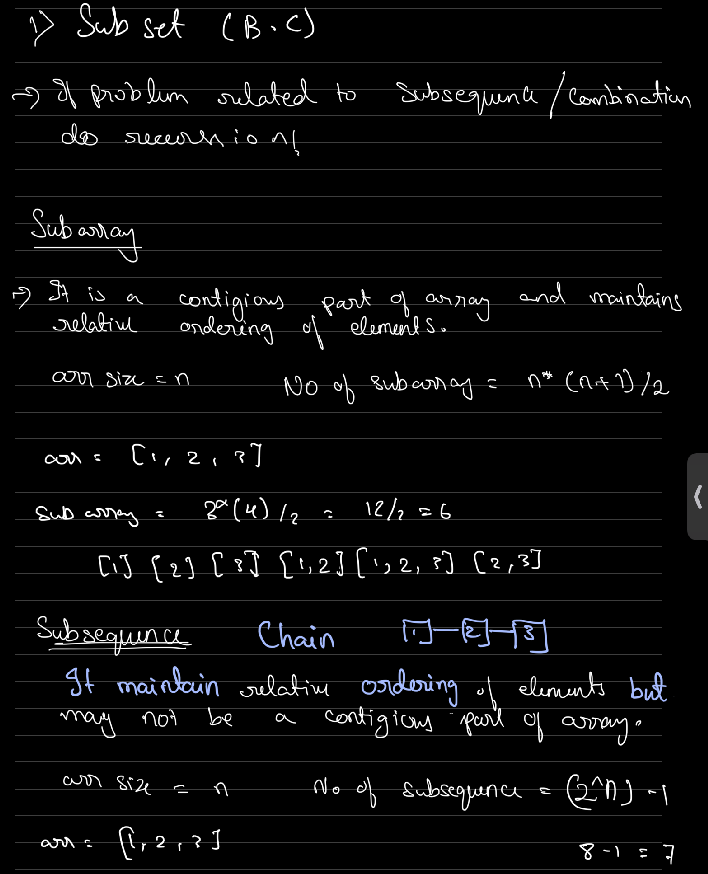 1) Sub set (B.C)
→ If problem related to Subsequence / Combination
do recursion!
Subarray
→ It is a contigious part of array and maintains
relative ordering of elements.
arr size = n No of subarray = n* (n+1)/2
arr = [1, 2, 3]
sub array = 3*(4)/2 = 12/2 = 6
[1] [2] [3] [1,2] [1, 2, 3] [2,3]
Subsequence Chain [1]—[2]—[3]
It maintain relative ordering of elements but
may not be a contigious part of array.
arr size = n No of subsequence = (2^n) -1
arr = [1, 2, 3] 8 - 1 = 7